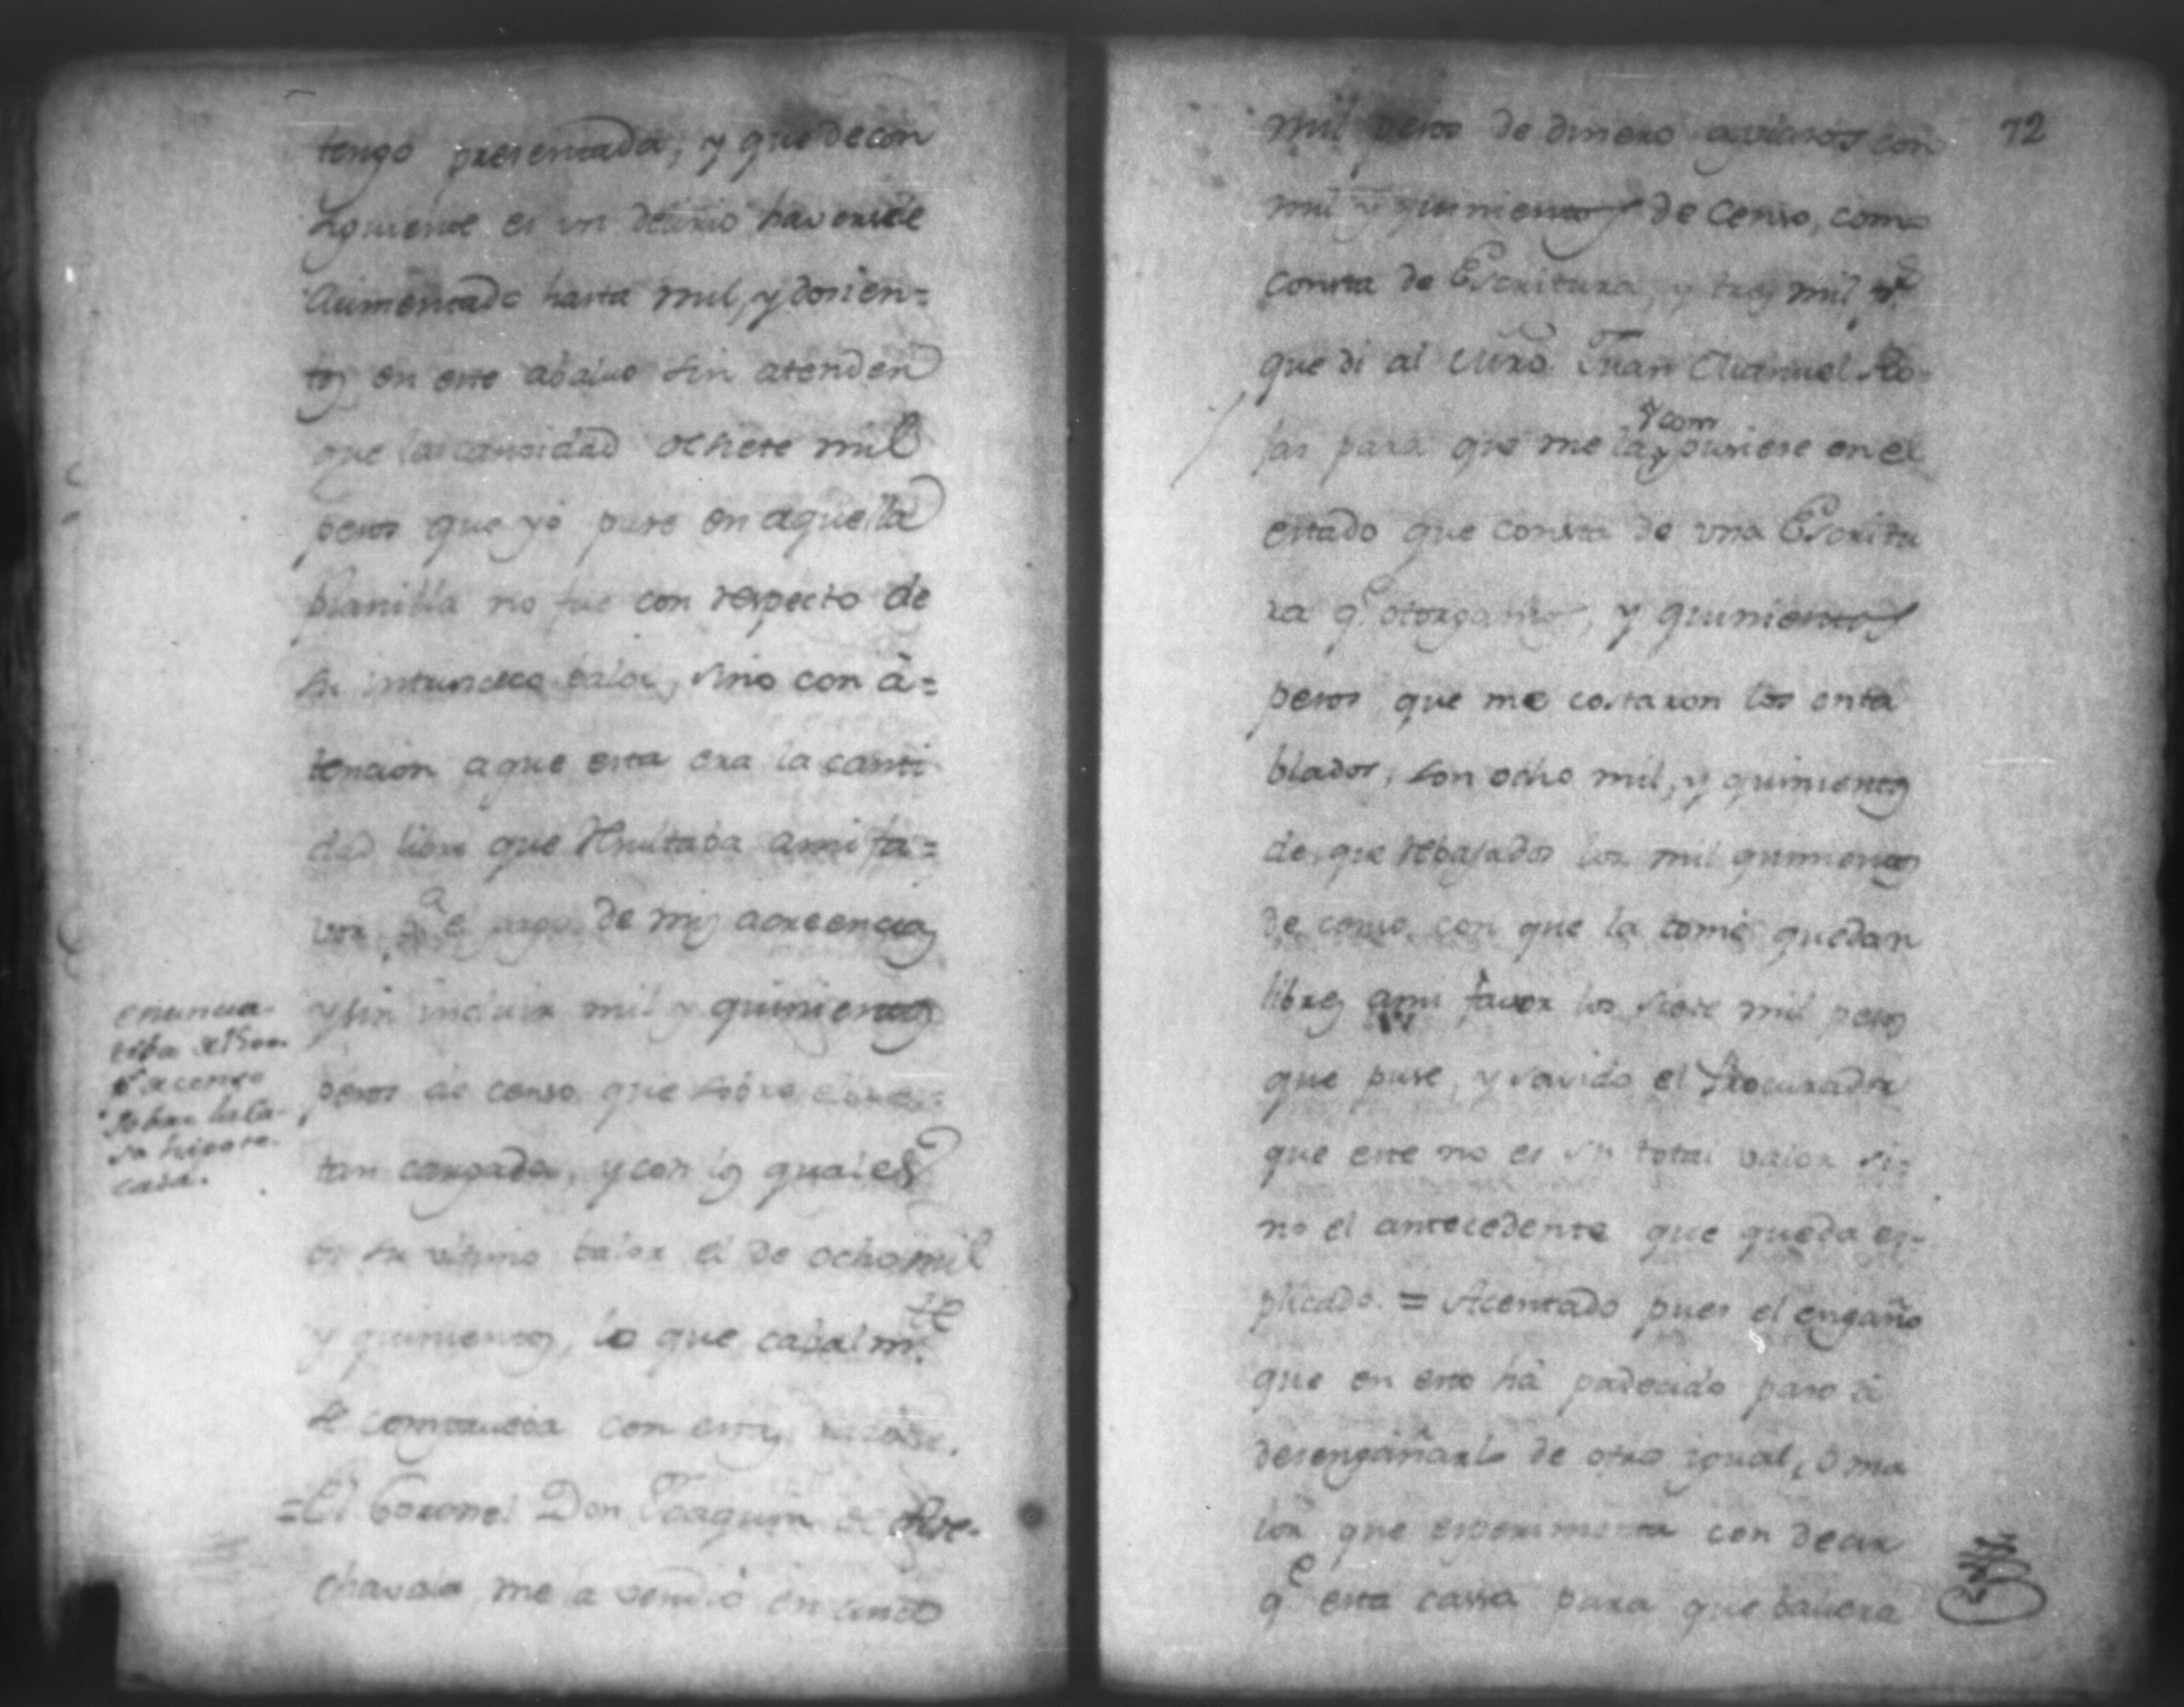 tengo presentada, y que de con
siguiente es un delirio haverse le
aumentado hasta mil, y dosien=
tos en este abaluo sin atender
que la cantidad de siete mil
pesos que yo puse en aquella
planilla no fue con respecto de
su intrinseco balor, sino con à=
tencion a que esta era la canti
dad libre que resultaba a mi fa=
vor pa el pago de mis acreencias
y sin incluir mil y quinientos
pesos de censo que sobre
tan cargados, y con los quales
es su ultimo balor el de ocho mil
y quinientos, lo que cabalmte
se comprueba con esta
=El Coronel Don Joaquin de Are-
chavala me la vendiò en cinco
enuncia-
tiba de 1500
ps a censo
sobre la Ca-
sa hipote-
cada.
72
mil pesos de dinero con
mil y quinientos de Censo, como
consta de Escritura, y tres mil ps
que di al Mro. Juan Manuel Ro-
jas para que me la
y com
pusiese en el
estado que consta de una Escritu
ra qe otorgamos, y quinientos
pesos que me costaron los enta
blados, son ocho mil, y quinientos
de que rebajados los mil quinientos
de censo con que la tomè quedan
libres a mi favor los siete mil pesos
que puse, y savido el Procurador
que este no es su total valor si=
no el antecedente que queda es-
plicado. = Acentado pues el engaño
que en esto hà padecido paso à
desengañarlo de otro igual, ò ma
ior que esperimenta con decir
qe esta cassa para que baliera